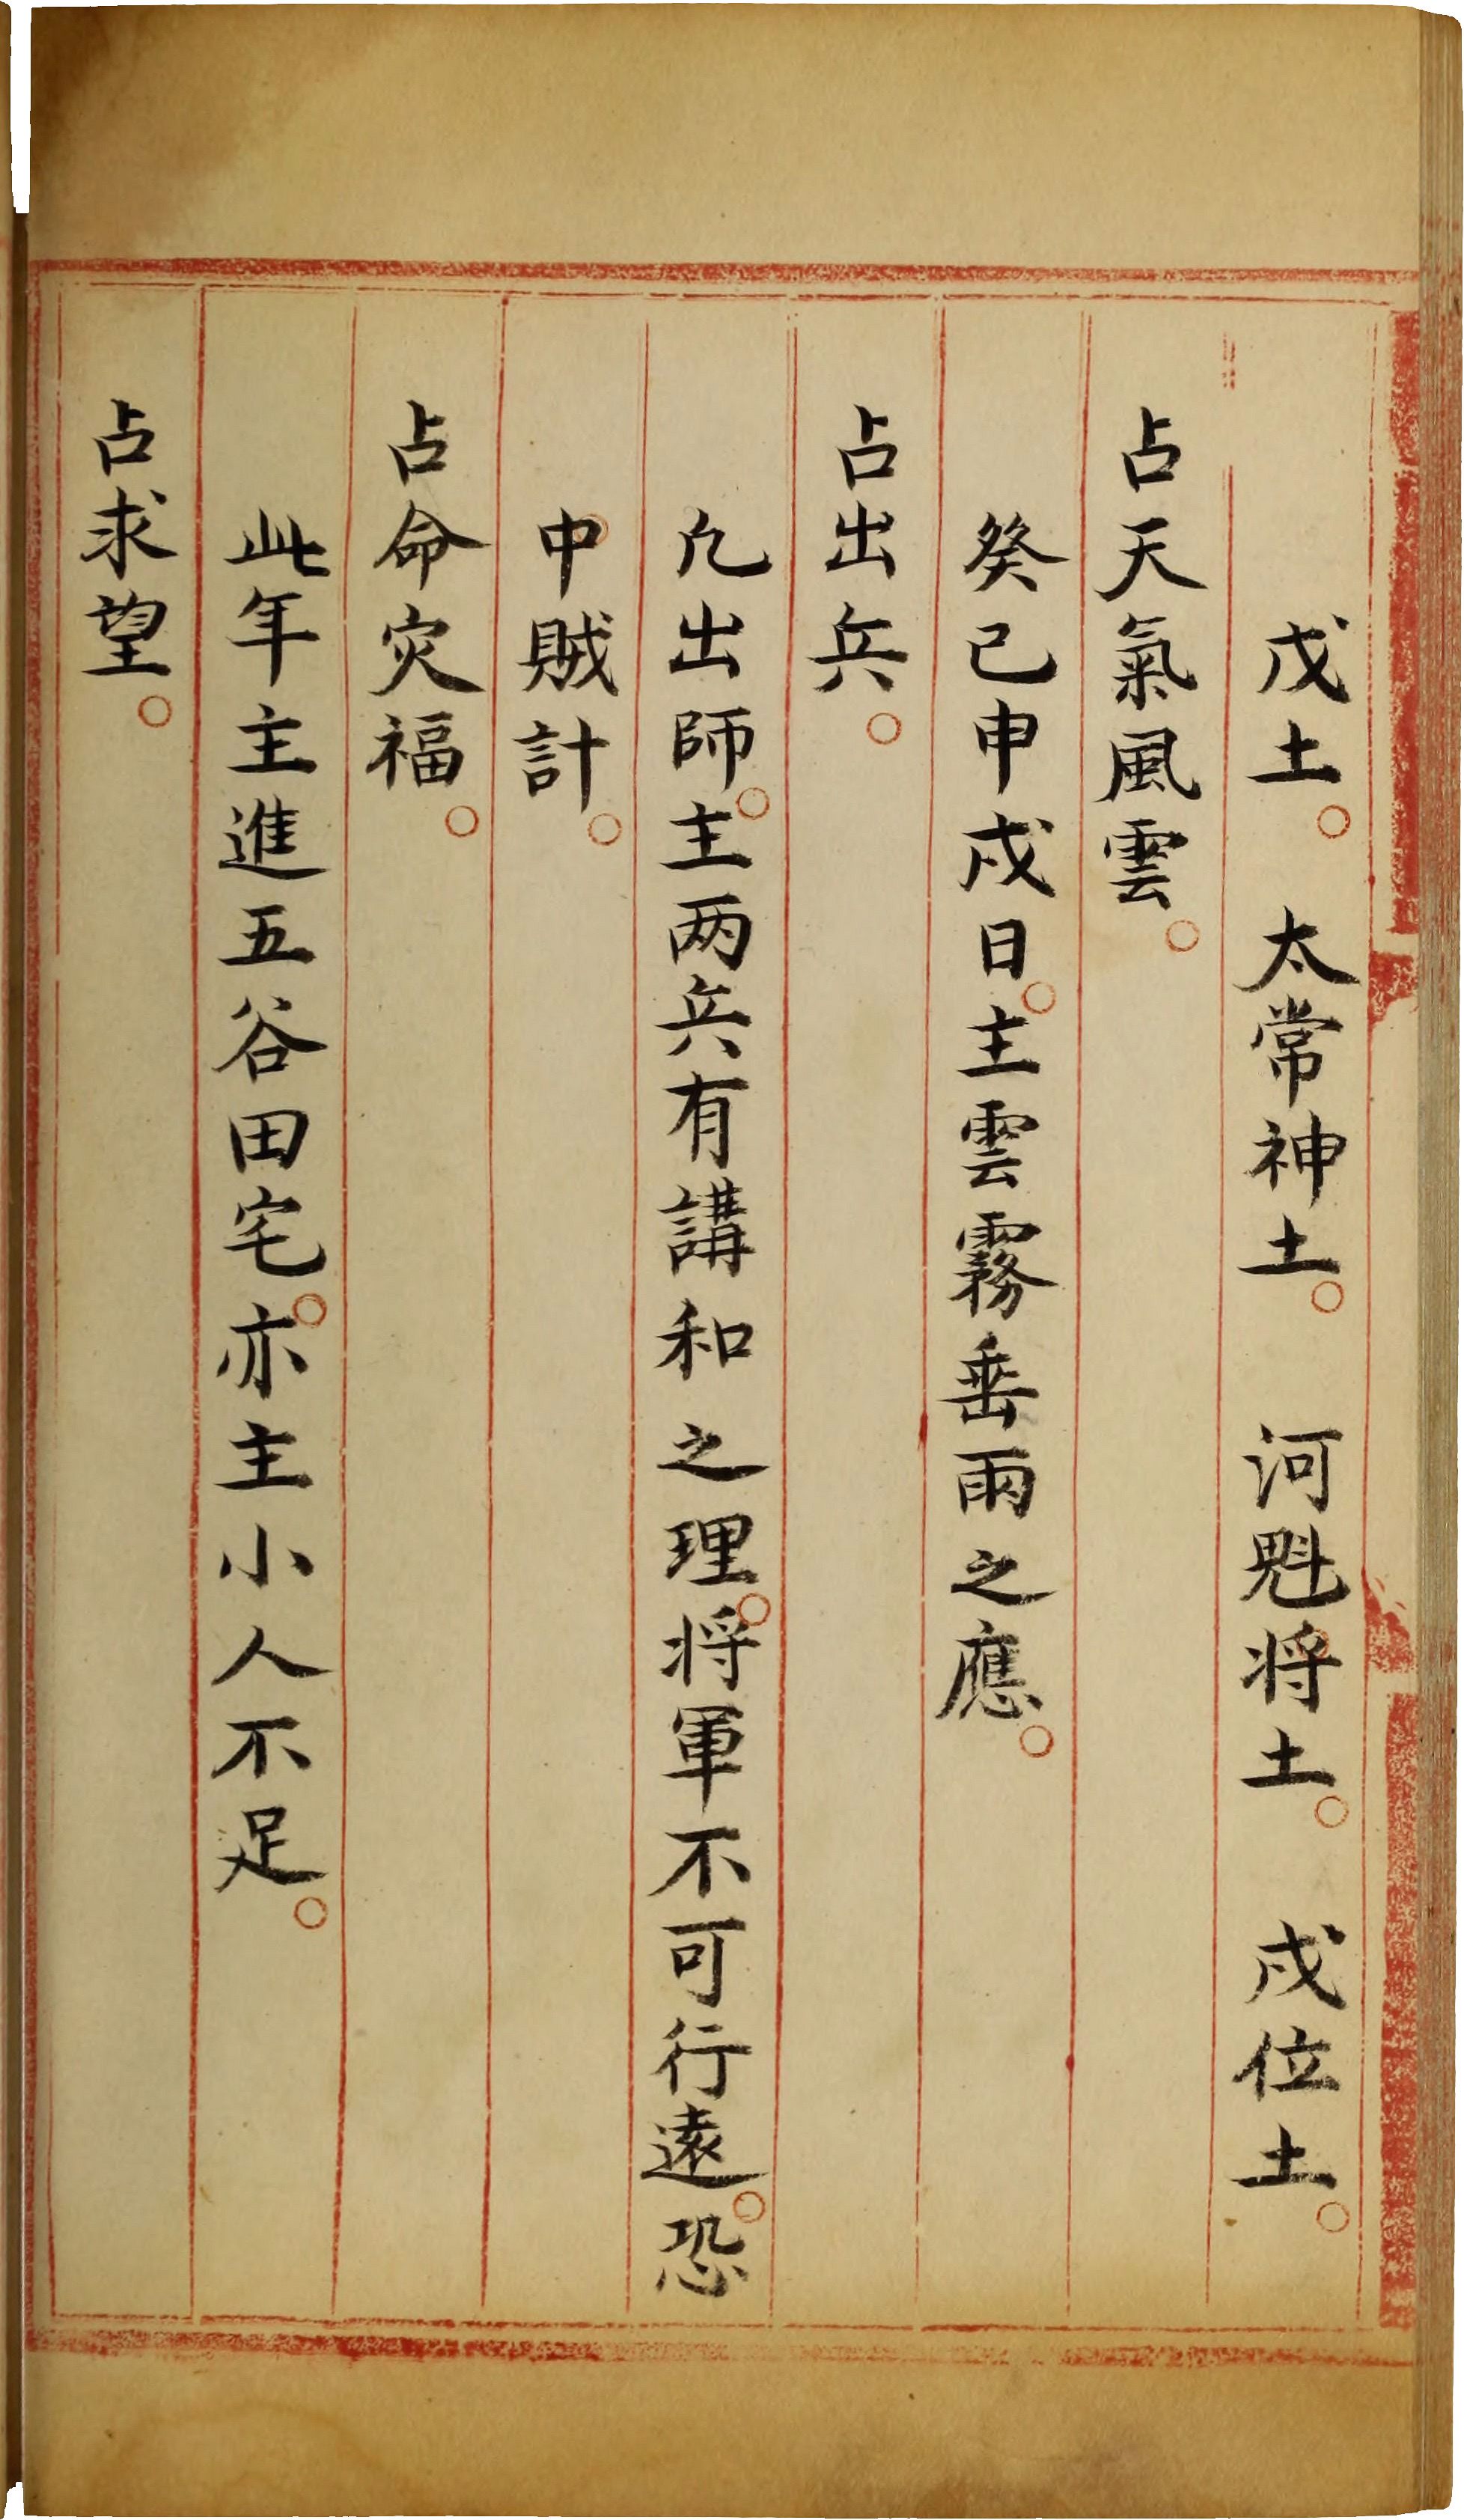 戊土。　太常神土。　河魁将土。　戌位土。
占天氣風雲。
癸己申戌日。主雲霧垂雨之應。
占出兵。
凢出師。主两兵有講和之理。将軍不可行遠。恐
中賊計。
占命灾福。
此年主進五谷田宅。亦主小人不足。
占求望。